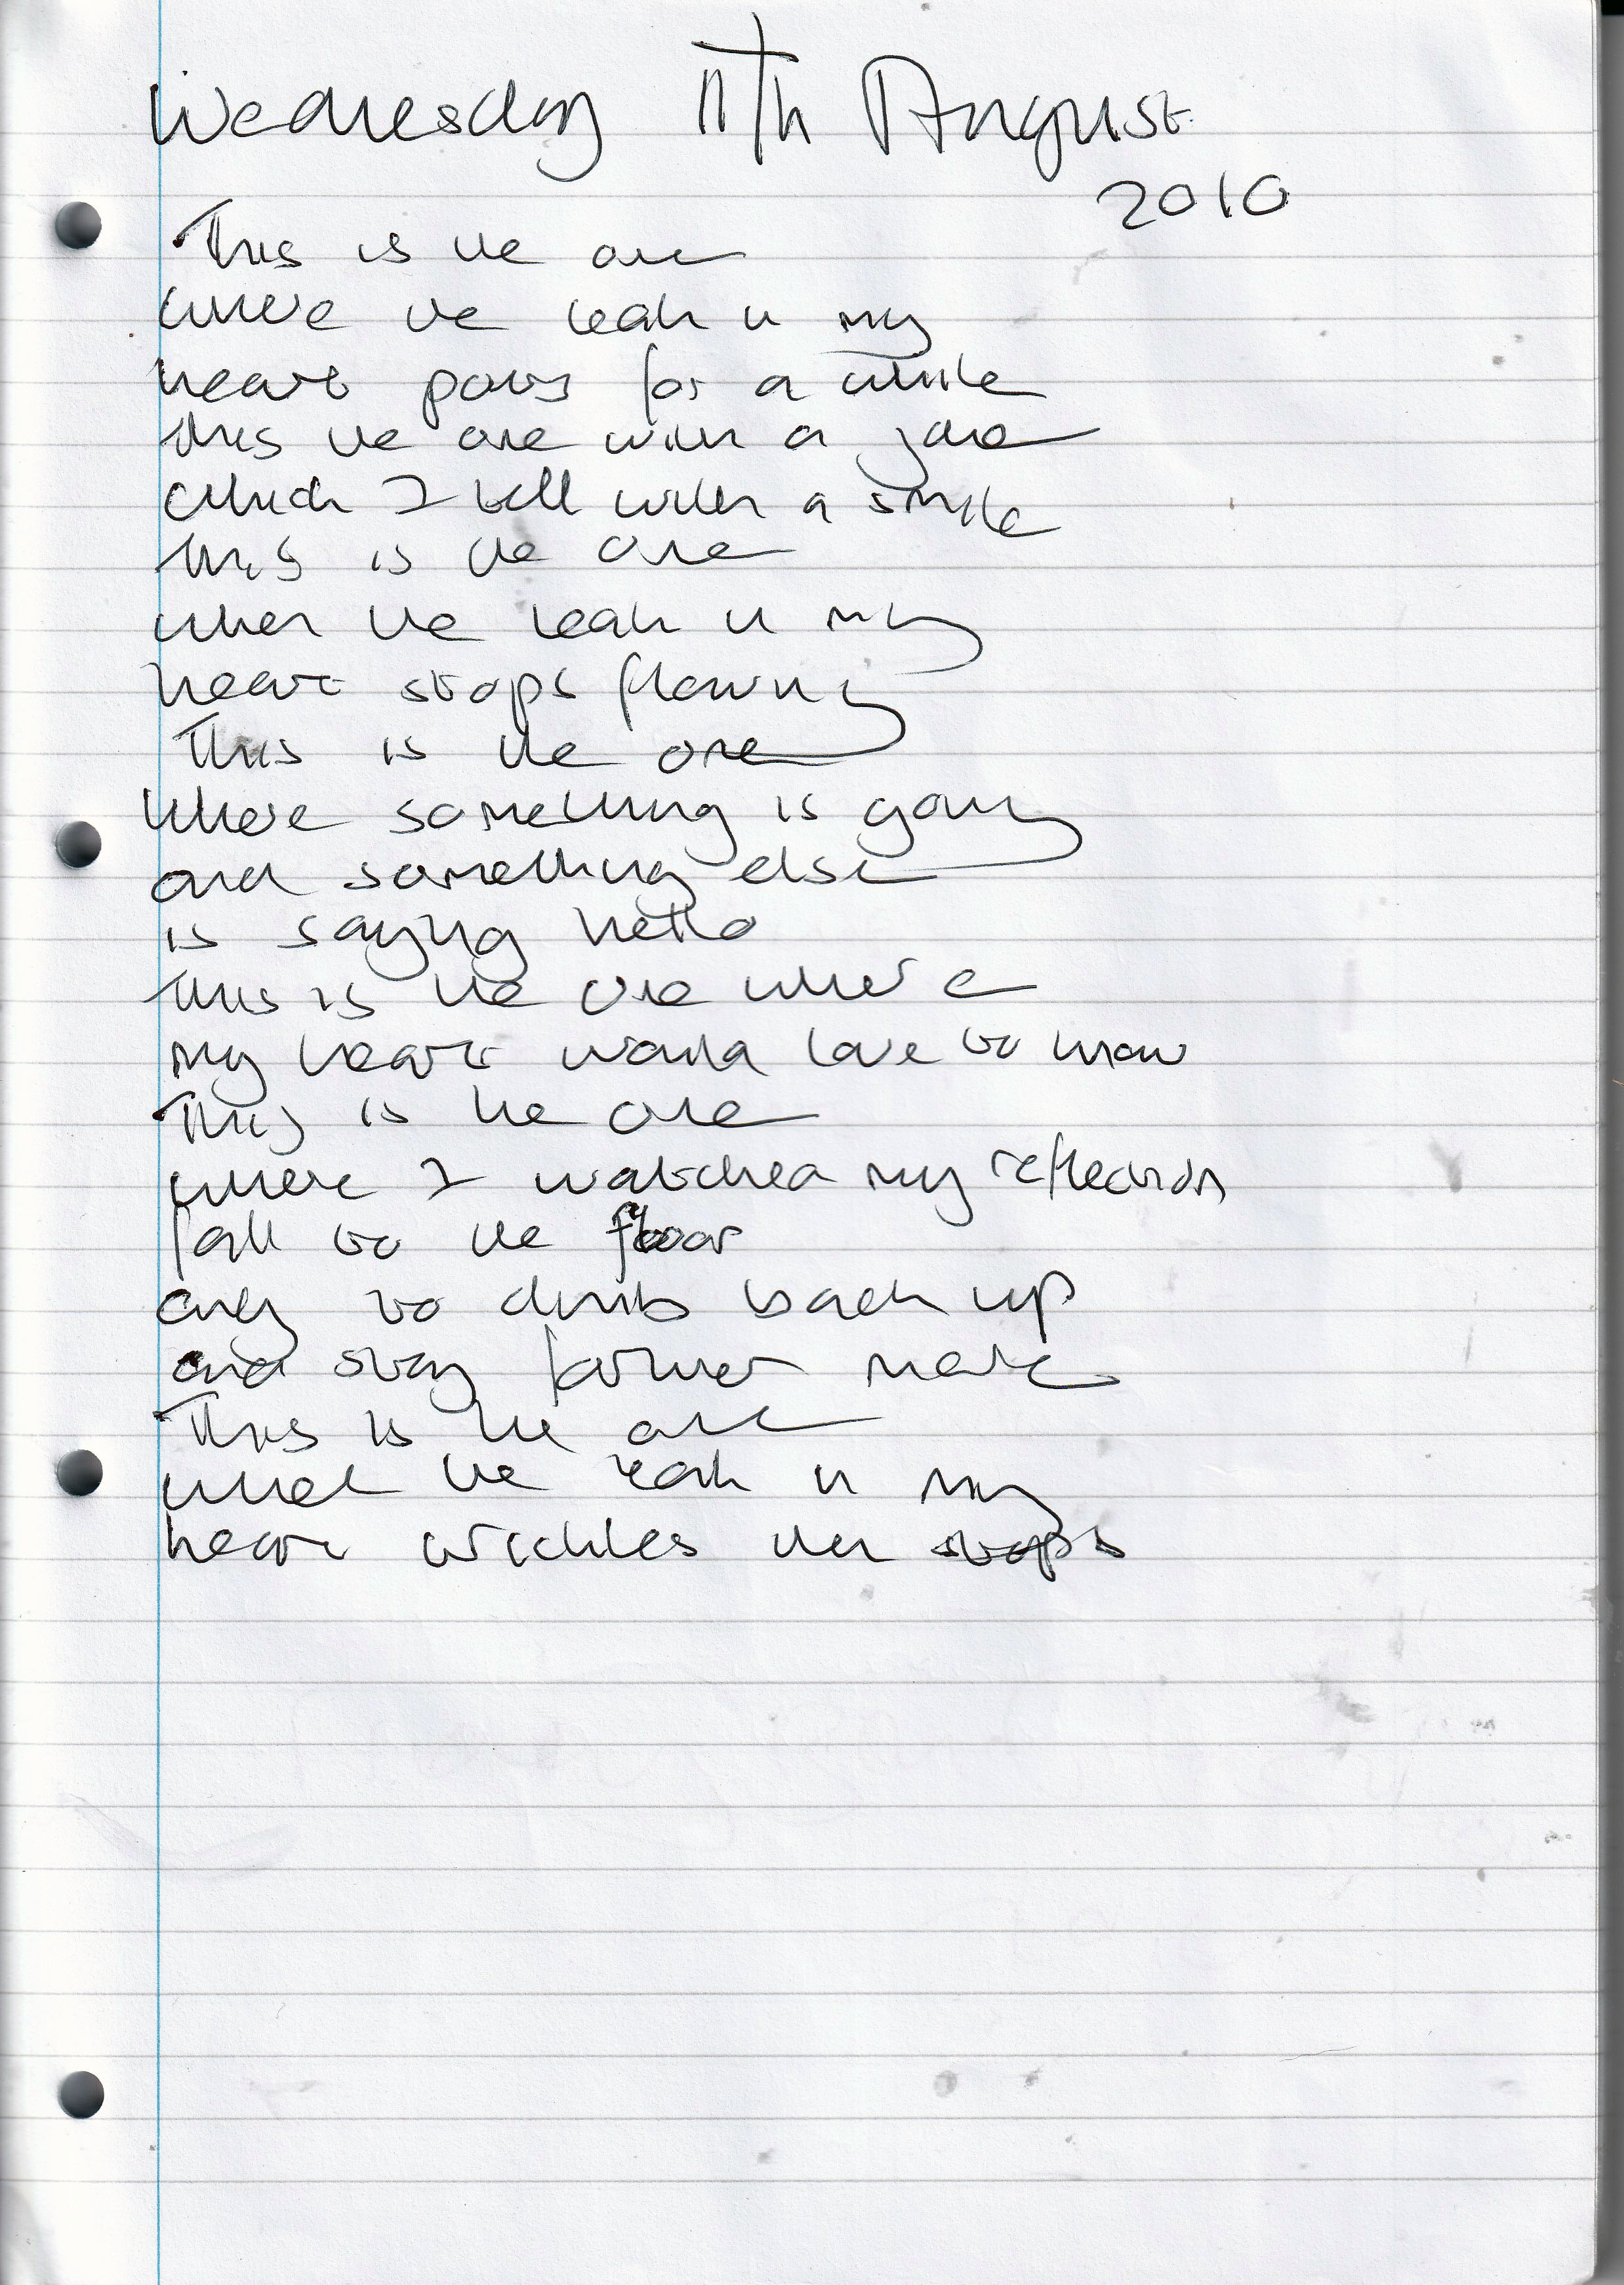 Wednesday 11th August
2010
This is the one
where the leak in my
heart pours for a while
this the one with a joke
which I tell with a smile
this is the one
when the leak in my
heart stops flowing
This is the one
where something is going
and something else
is saying hello
this is the one where
my heart would love to know
This is the one
where I watched my reflection
fall to the floor
only to climb back up
and stay further
This is the one
where the leak in my
heart trickles then stops